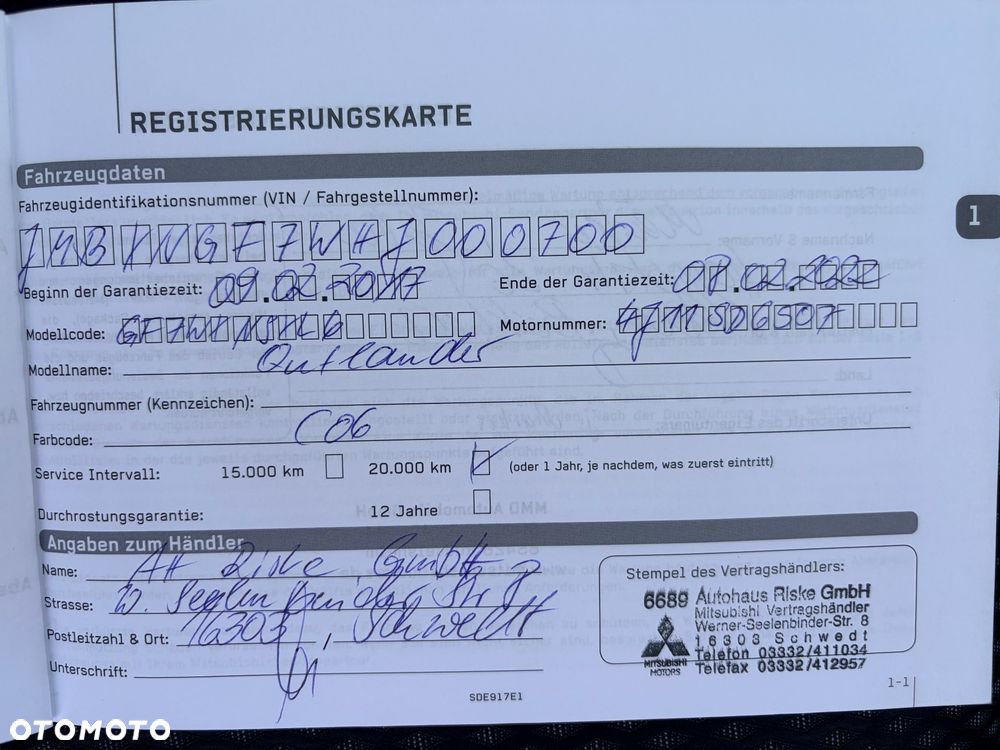 REGISTRIERUNGSKARTE
Fahrzeugdaten
1
Fahrzeugidentifikationsnummer (VIN / Fahrgestellnummer):
JMBXNGF7WHJ000700
Beginn der Garantiezeit: 09.02.2017
Ende der Garantiezeit: 08.02.2022
Modellcode:
Motornummer: 4J11SD6507
Modellname: Outlander
Fahrzeugnummer (Kennzeichen):
Farbcode: C06
Service Intervall: 15.000 km 20.000 km (oder 1 Jahr, je nachdem, was zuerst eintritt)
Durchrostungsgarantie: 12 Jahre
Angaben zum Händler
Name: AH Riske GmbH
Strasse: W. Seelenbinder Str 8
Postleitzahl & Ort: 16303, Schwedt
Unterschrift:
Stempel des Vertragshändlers:
6689 Autohaus Riske GmbH
Mitsubishi Vertragshändler
Werner-Seelenbinder-Str. 8
16303 Schwedt
Telefon 03332/411034
Telefax 03332/412957
MITSUBISHI
MOTORS
SDE917E1
1-1
OTOMOTO